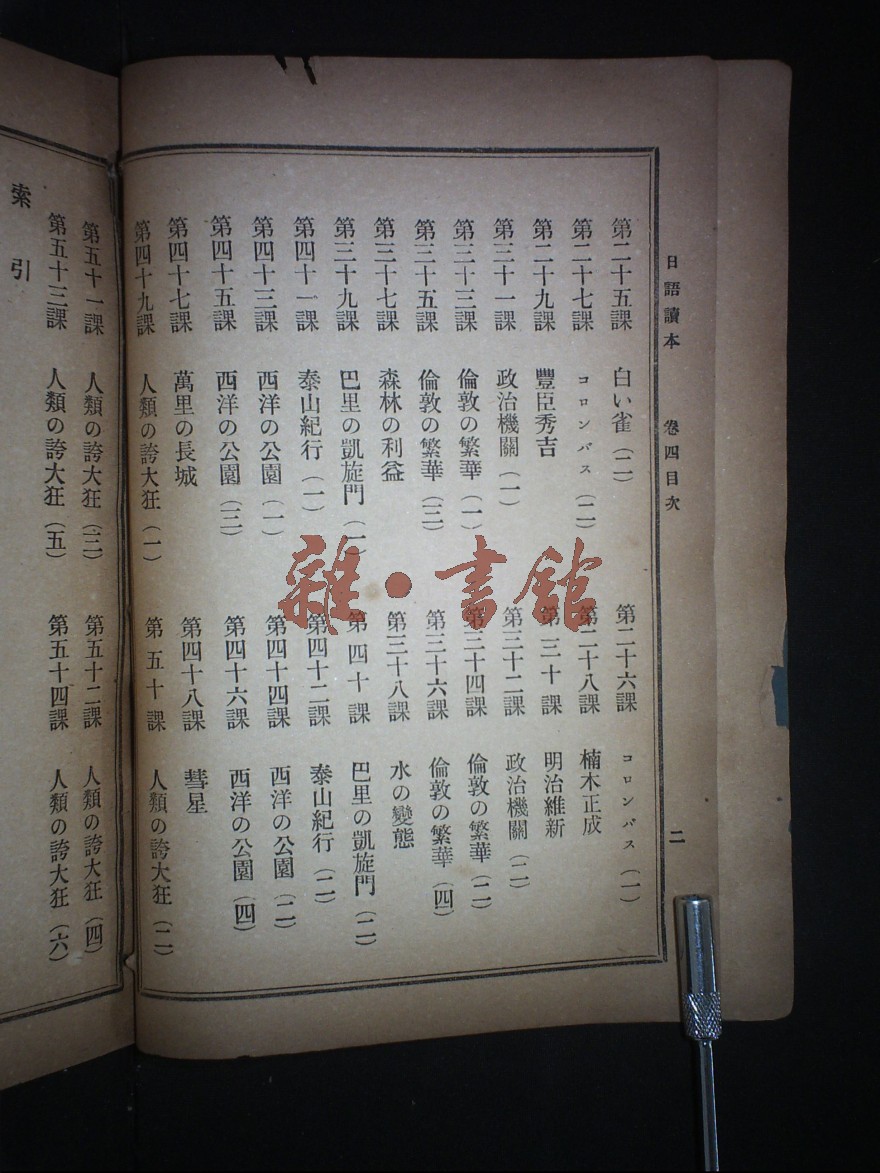 日語讀本 卷四目次 二
第二十五課 白い雀（二） 第二十六課 コロンバス（一）
第二十七課 コロンバス（二） 第二十八課 楠木正成
第二十九課 豐臣秀吉 第三十課 明治維新
第三十一課 政治機關（一） 第三十二課 政治機關（二）
第三十三課 倫敦の繁華（一） 第三十四課 倫敦の繁華（二）
第三十五課 倫敦の繁華（三） 第三十六課 倫敦の繁華（四）
第三十七課 森林の利益 第三十八課 水の變態
第三十九課 巴里の凱旋門（一） 第四十課 巴里の凱旋門（二）
第四十一課 泰山紀行（一） 第四十二課 泰山紀行（二）
第四十三課 西洋の公園（一） 第四十四課 西洋の公園（二）
第四十五課 西洋の公園（三） 第四十六課 西洋の公園（四）
第四十七課 萬里の長城 第四十八課 彗星
第四十九課 人類の誇大狂（一） 第五十課 人類の誇大狂（二）
第五十一課 人類の誇大狂（三） 第五十二課 人類の誇大狂（四）
第五十三課 人類の誇大狂（五） 第五十四課 人類の誇大狂（六）
索引
雜・書館